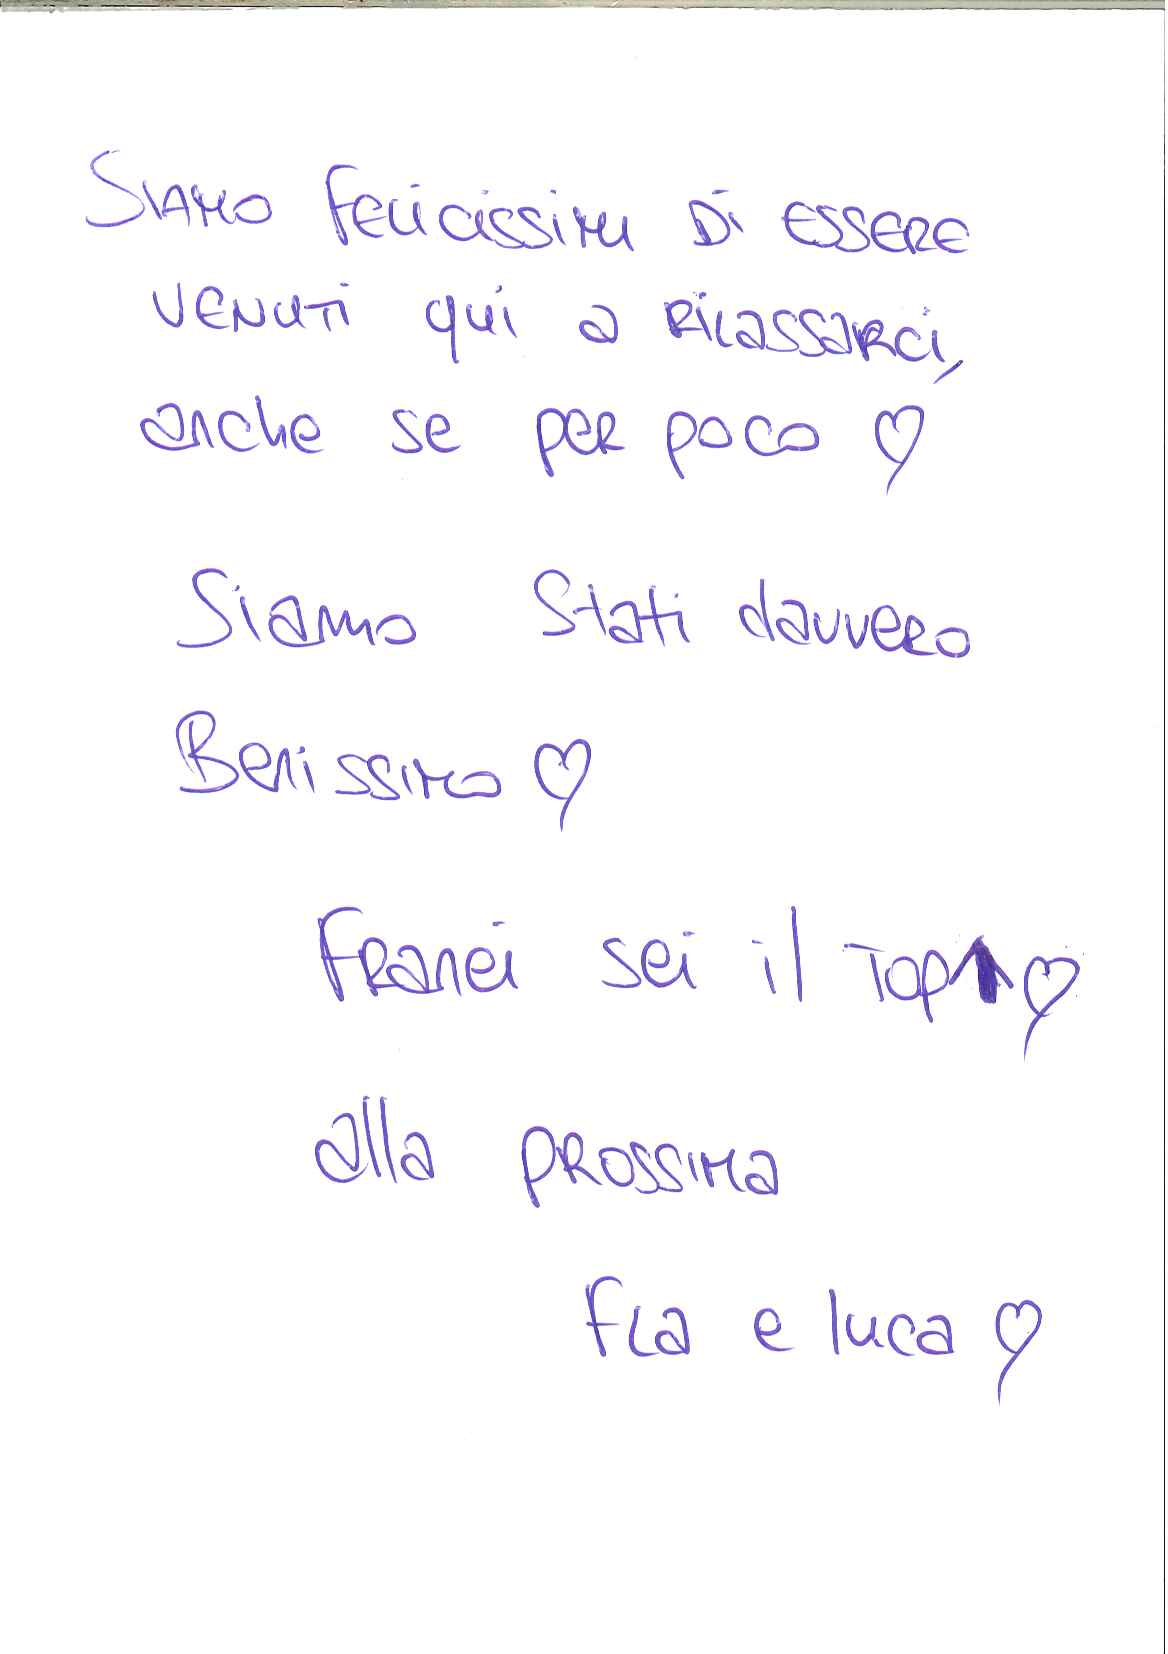 Siamo felicissimi di essere
venuti qui a rilassarci,
anche se per poco ♡
Siamo stati davvero
Benissimo ♡
Franci sei il Top ↑ ♡
alla prossima
Fla e luca ♡